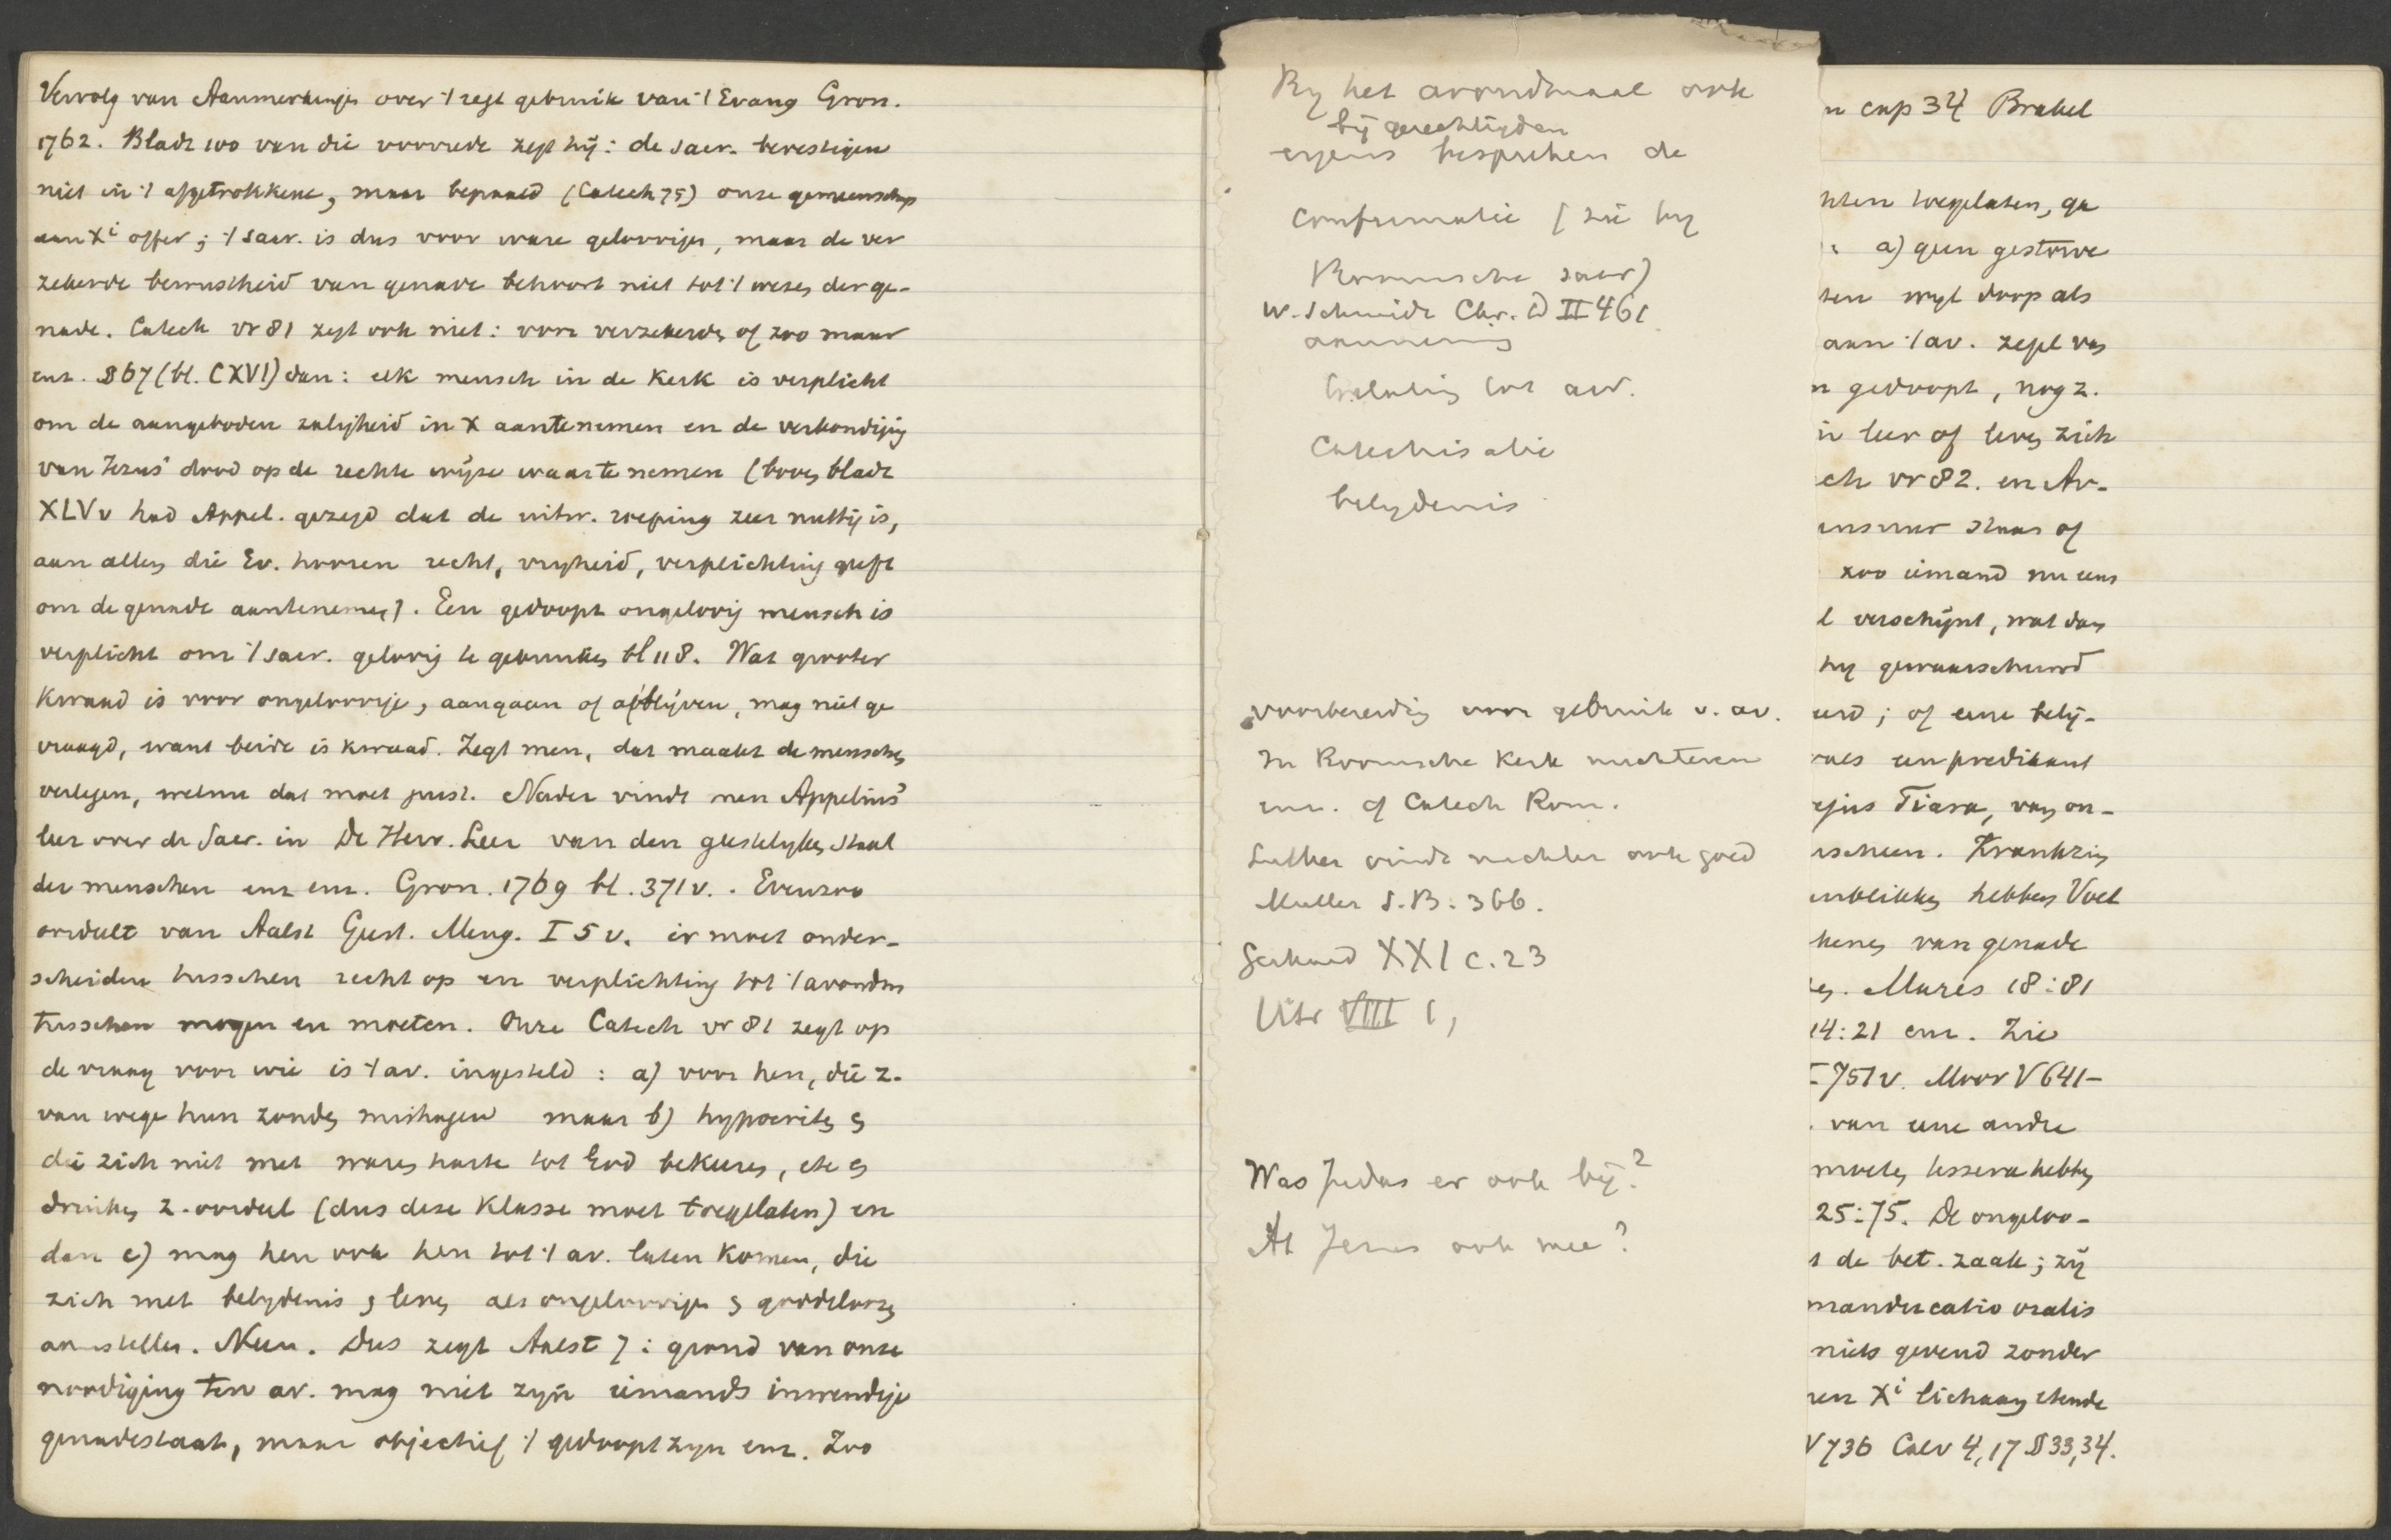 Vervolg van Aanmerkinge over 't regt gebruik van 't Evang Gron.
1762. Bladz 100 van die voorrede zegt hij: de sacr. bevestigen
niet in 't afgetrokkene, maar bepaald (Catech 75) onze gemeenschap
aan Xi offer; 't sacr. is dus voor ware geloovigen, maar de ver
zekerde bewustheid van genade behoort niet tot 't wezen der ge-
nade. Catech vr 81 zegt ook niet: voor verzekerde of zoo maar
enz. § 67 (bl. CXVI) dan: elk mensch in de Kerk is verplicht
om de aangeboden zaligheid in X aantenemen en de verkondiging
van Jezus' dood op de rechte wijze waartenemen (boven bladz
XLV v had Appel. gezegd dat de uitw. roeping zeer nuttig is,
aan allen die Ev. hooren recht, vryheid, verplichting geeft
om de genade aantenemen). Een gedoopt ongeloovig mensch is
verplicht om 't sacr. geloovig te gebruiken bl 118. Wat grooter
kwaad is voor ongeloovige, aangaan of afblijven, mag niet ge
vraagd, want beide is kwaad. Zegt men, dat maakt de menschen
verlegen, welnu dat moet juist. Nader vindt men Appelius'
leer over de Sacr. in De Herv. Leer van den geestelyken staat
der menschen enz enz. Gron. 1769 bl. 371 v. . Evenzoo
oordeelt van Aalst Geest. Meng. I 5 v. er moet onder-
scheiden tusschen recht op en verplichting tot 't avondm
tusschen mogen en moeten. Onze Catech vr 81 zegt op
de vraag voor wie is 't av. ingesteld: a) voor hen, die z.
van wege hun zonden mishagen maar b) hypocriten en
die zich niet met waren harte tot God bekeeren, eten en
drinken z. oordeel (dus deze klasse moet toegelaten) en
dan c) mag hen ook hen tot 't av. laten komen, die
zich met belydenis en leven als ongeloovige en goddelooze
aanstellen. Neen. Dus zegt Aalst 7: grond van onze
noodiging ten av. mag niet zyn iemands inwendige
genadestaat, maar objectief 't gedoopt zyn enz. Zoo
By het avondmaal ook
bij gerechtigden
ergens bespreken de
confirmatie (zie by
Roomsche sacr)
W. Schmidt Chr. D II 461
aanneming
toelating tot av.
Catechisatie
belydenis
voorbereiding voor gebruik v. av.
In Roomsche Kerk nuchteren
enz. cf Catech Rom.
Luther vindt nuchter ook goed
Muller S.B. 366.
Gerhard XXI c. 23
Uitr VIII 1,
Was Judas er ook bij?
At Jezus ook mee?
n cap 34 Brakel
hten toegelaten, ga
: a) geen gestorve
ten wyl doop als
aan 't av. zegel van
n gedoopt, nog z.
in leer of leven zich
ch vr 82. en Av-
ensuur staat of
zoo iemand nu eens
l verschijnt, wat dan
hy gewaarschuwd
erd; of eene belij-
als een predikant
ejus Tiara, van on-
scheen. Krankzin
enblikken hebben Voet
henen van genade
en. Mares 18:81
14:21 enz. Zie
I 751 v. Moor V 641-
. van eene andre
moeten tessera hebben
25:75. De ongeloo-
t de bet. zaak; zij
manducatio oralis
niets gevend zonder
en Xi lichaam etende
V 736 Calv 4, 17 § 33, 34.